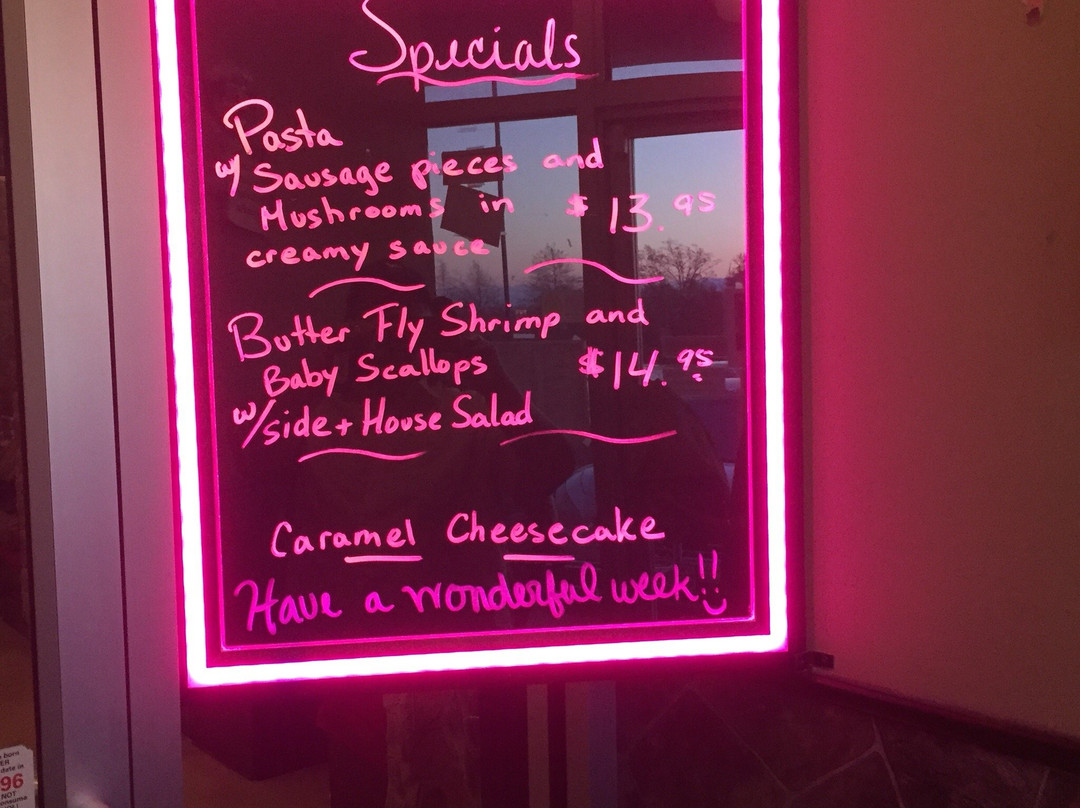 Specials
Pasta
w/ Sausage pieces and
Mushrooms in $13.95
creamy sauce
Butter Fly Shrimp and
Baby Scallops $14.95
w/side + House Salad
Caramel Cheesecake
Have a wonderful week!!
born
ER
date in
96
NOT